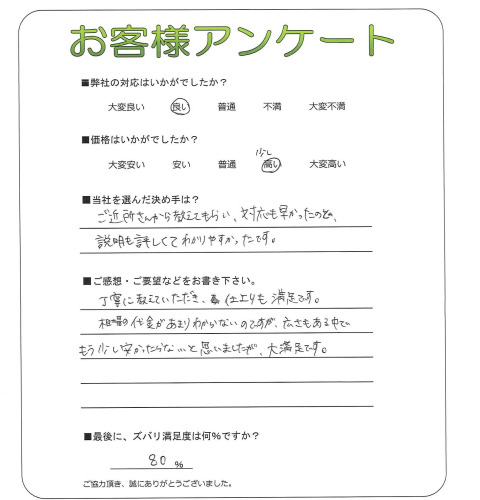 お客様アンケート
■弊社の対応はいかがでしたか？
大変良い 良い 普通 不満 大変不満
■価格はいかがでしたか？
少し
大変安い 安い 普通 高い 大変高い
■当社を選んだ決め手は？
ご近所さんから教えてもらい、対応も早かったのと、
説明も詳しくてわかりやすかったです。
■ご感想・ご要望などをお書き下さい。
丁寧に教えていただき、仕上りも満足です。
相場の代金があまりわからないのですが、広さもある中で
もう少し安かったらないと思いましたが、大満足です。
■最後に、ズバリ満足度は何%ですか？
80 %
ご協力頂き、誠にありがとうございました。